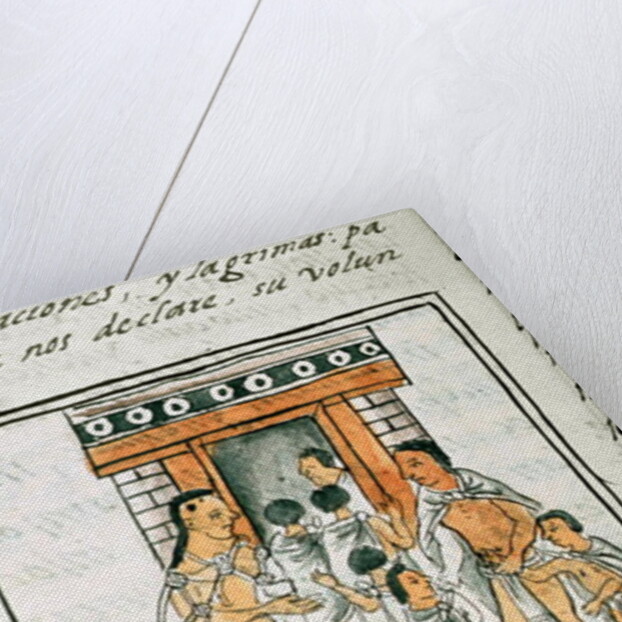 aciones, y lagrimas: pa
nos declare, su volun